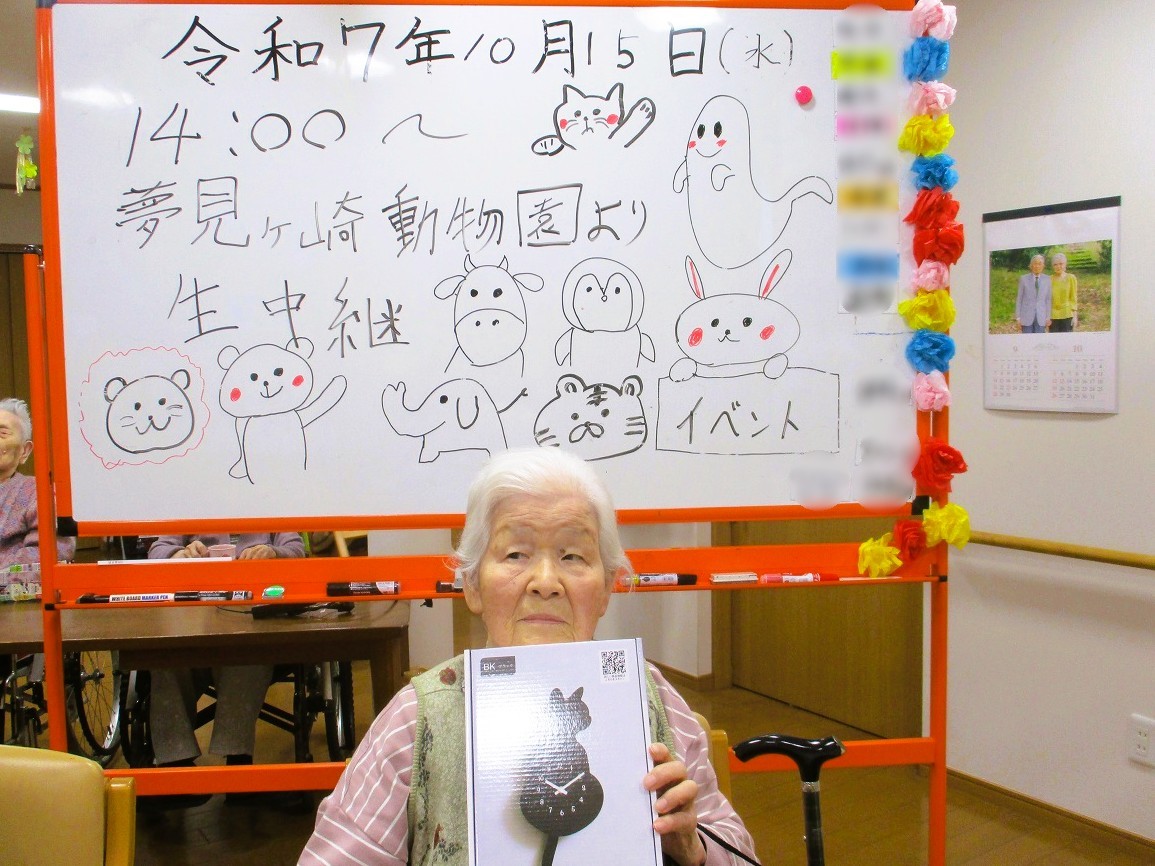 令和7年10月15日(水)
14:00〜
夢見ヶ崎動物園より
生中継
イベント
9
10
WHITE BOARD MARKER PEN
BK